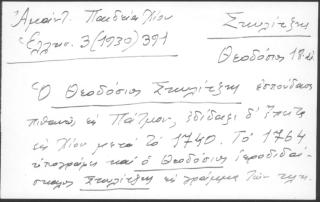 Ἀμάντ. Παιδεία Χίου
Ἑλλην. 3 (1930) 391
Σκυλίτζης
Θεοδόσιος 18
Ὁ Θεοδόσιος Σκυλίτζης ἐσπούδασε
πιθανῶς ἐν Πάτμῳ, ἐδίδαξε δ' ἔπειτα
ἐν Χίῳ μετὰ τὸ 1740. Τὸ 1764
ὑπογράφει καὶ ὁ Θεοδόσιος ἱεροδιδά-
σκαλος Σκυλίτζης εἰς γράμμα τῶν